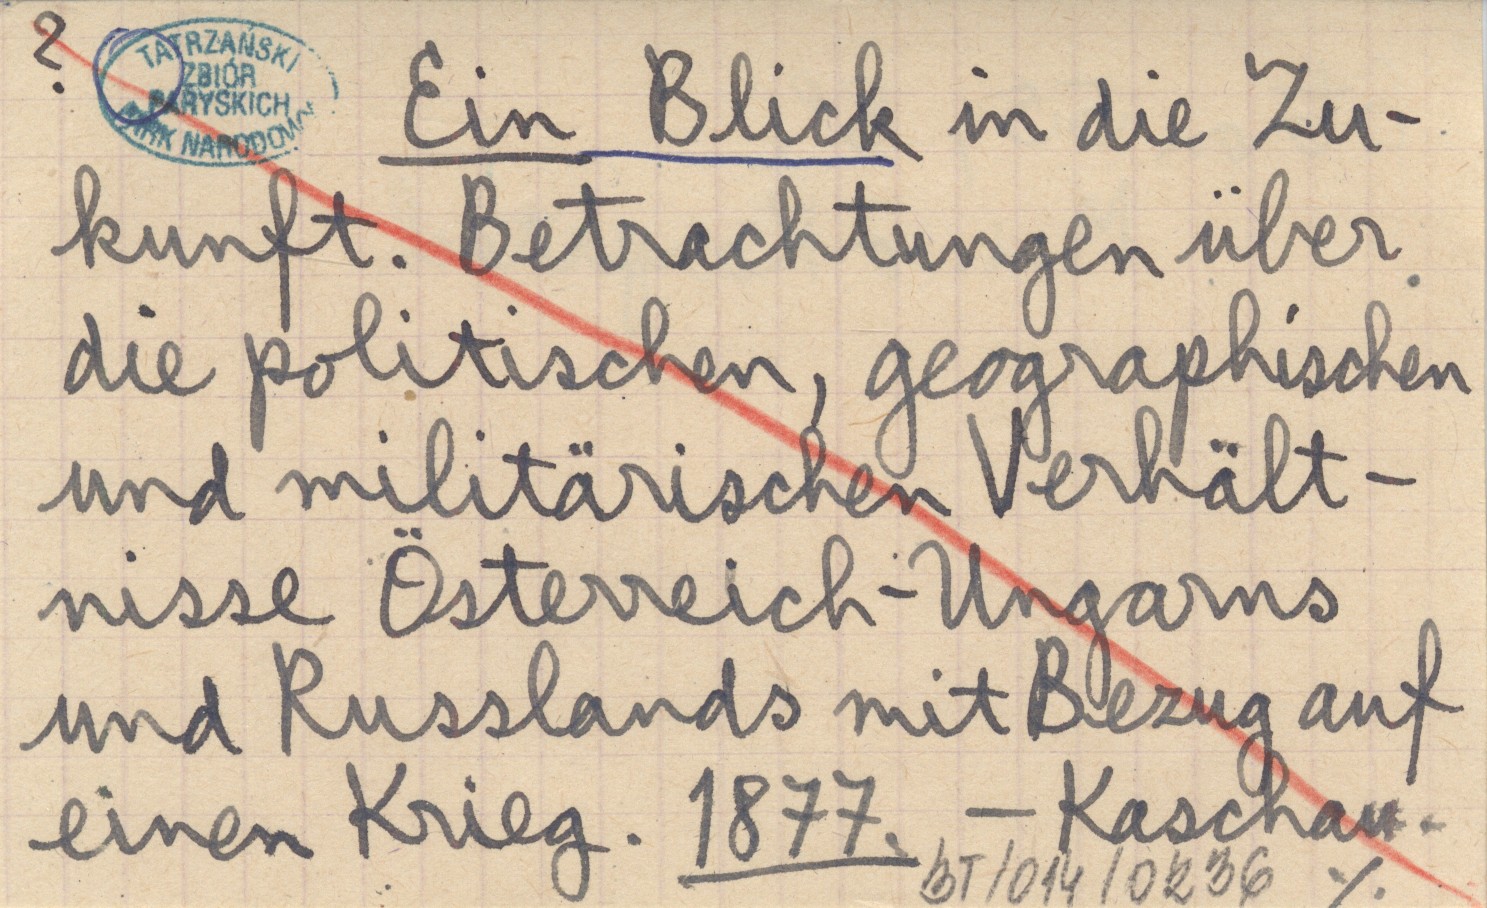 ?
TATRZAŃSKI
ZBIÓR
PARYSKICH
PARK NARODOWY
Ein Blick in die Zu-
kunft. Betrachtungen über
die politischen, geographischen
und militärischen Verhält-
nisse Österreich-Ungarns
und Russlands mit Bezug auf
einen Krieg. 1877. – Kaschau.
BT/014/0236 ./.